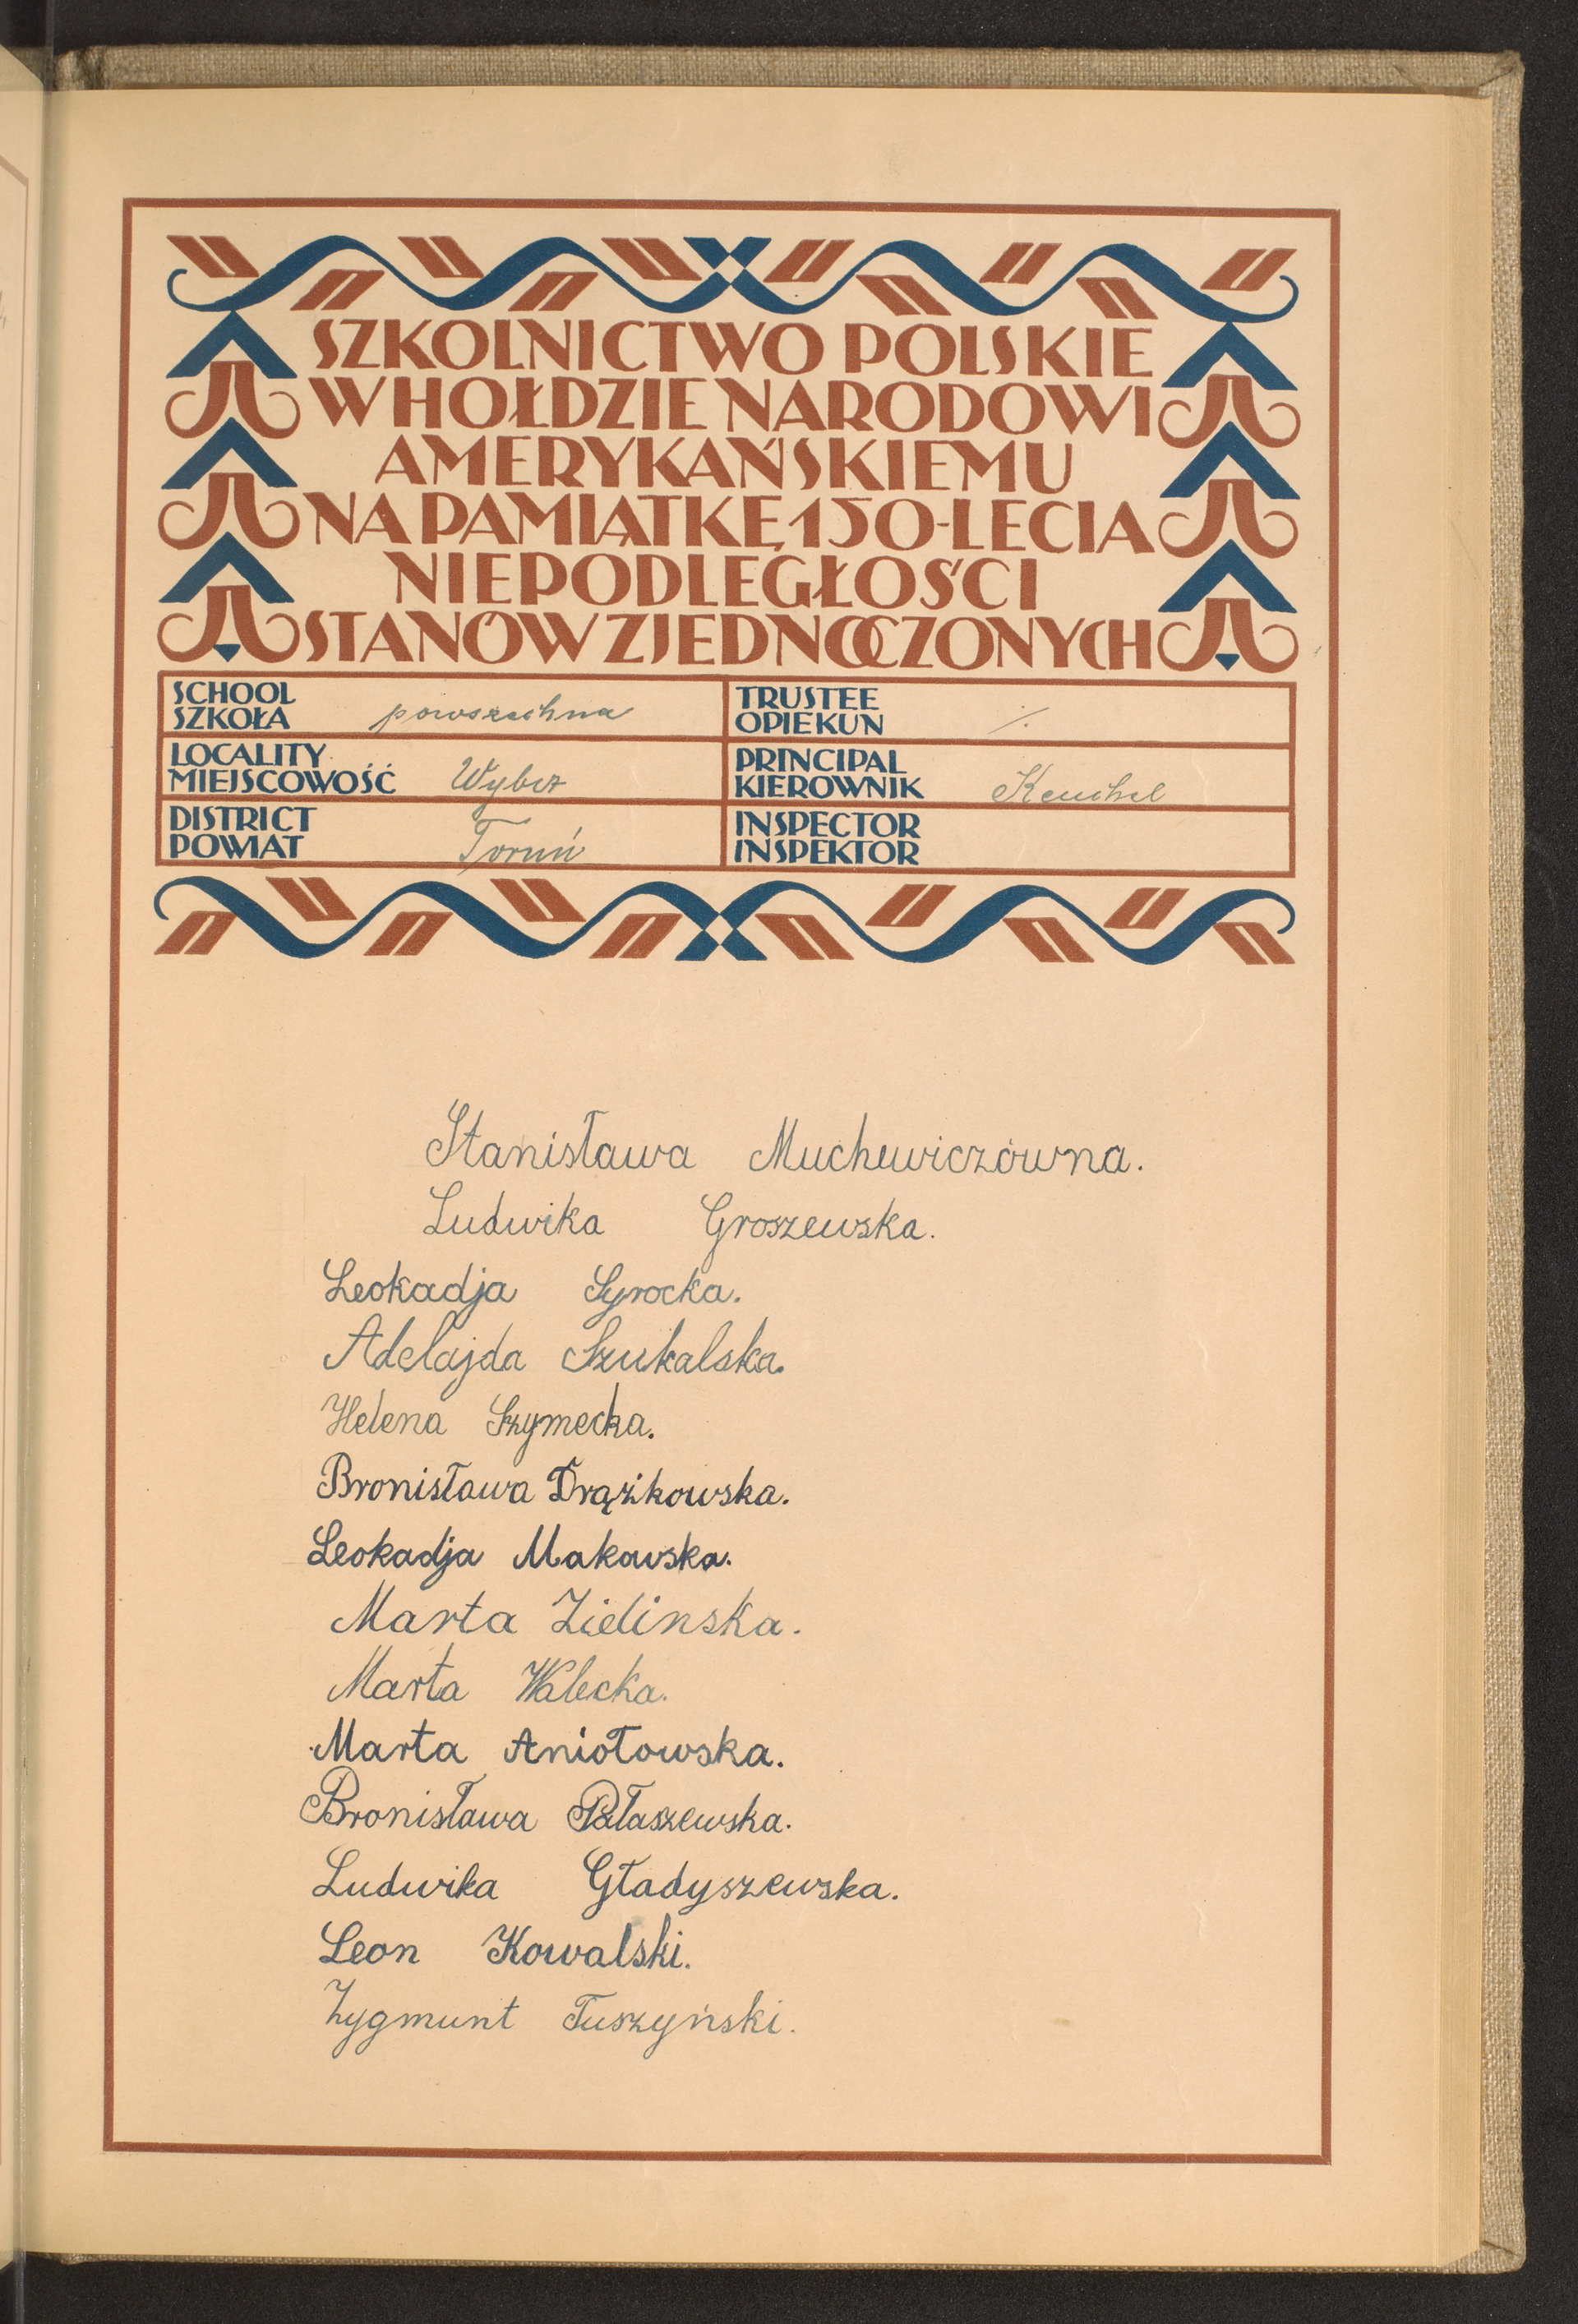 SZKOLNICTWO POLSKIE
W HOŁDZIE NARODOWI
AMERYKAŃSKIEMU
NA PAMIĄTKĘ 150-LECIA
NIEPODLEGŁOŚCI
STANÓW ZJEDNOCZONYCH
SCHOOL
SZKOŁA powszechna
TRUSTEE
OPIEKUN ·/.
LOCALITY
MIEJSCOWOŚĆ Wybcz
PRINCIPAL
KIEROWNIK
DISTRICT
POWIAT Toruń
INSPECTOR
INSPEKTOR
Stanisława Muchewiczówna.
Ludwika Groszewska.
Leokadja Syrocka.
Adelajda Szukalska.
Helena Szymecka.
Bronisława Drążkowska.
Leokadja Makowska.
Marta Zielinska.
Marta Walecka.
Marta Aniołowska.
Bronisława Pałaszewska.
Ludwika Gładyszewska.
Leon Kowalski.
Zygmunt Tuszyński.